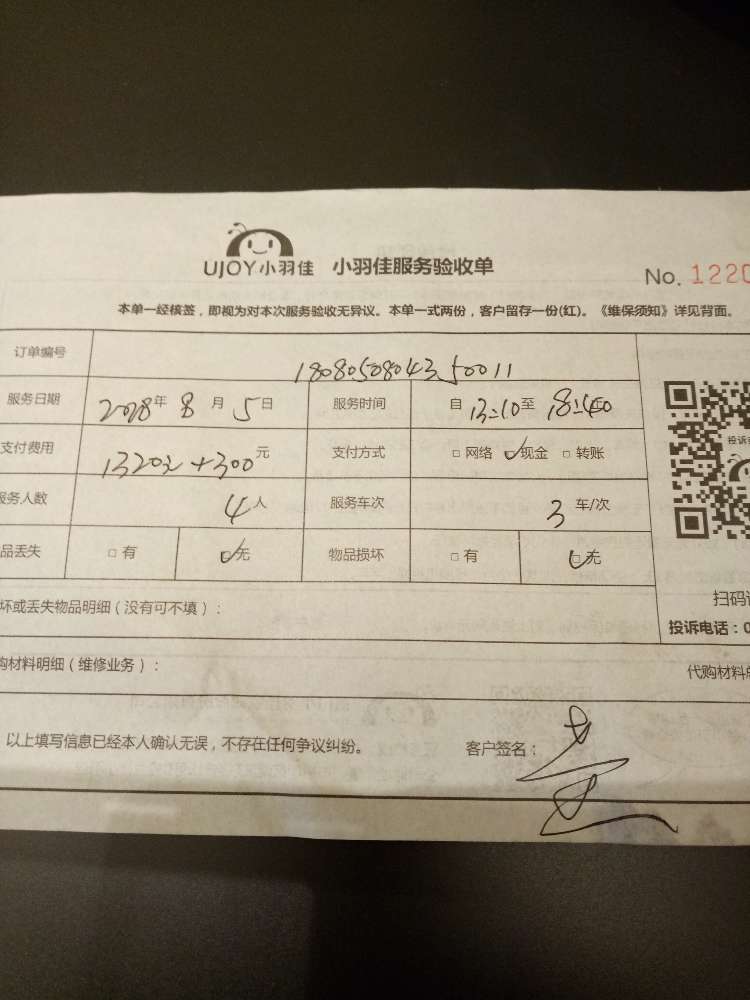 UJOY小羽佳 小羽佳服务验收单
No. 1220
本单一经核签，即视为对本次服务验收无异议。本单一式两份，客户留存一份(红)。《维保须知》详见背面。
订单编号 1808050804350011
服务日期 2018年 8月 5日 服务时间 自 13:10至 18:40
支付费用 1320元+300元 支付方式 □ 网络 ☑现金 □ 转账
服务人数 4人 服务车次 3 车/次
品丢失 □ 有 ☑无 物品损坏 □ 有 ☑无
坏或丢失物品明细（没有可不填）：
扫码
投诉
投诉电话：0
购材料明细（维修业务）：
代购材料
以上填写信息已经本人确认无误，不存在任何争议纠纷。 客户签名：